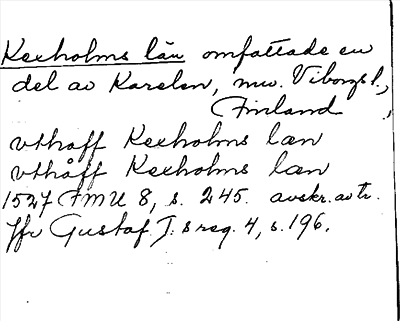 Kexholms län omfattade en
del av Karelen, nuv. Viborgs l.,
Finland
vthaff Kexholms læn
vthåff Kexholms læn
1527 FMU 8, s. 245. avskr. av tr.
Jfr Gustaf I:s reg. 4, s. 196.